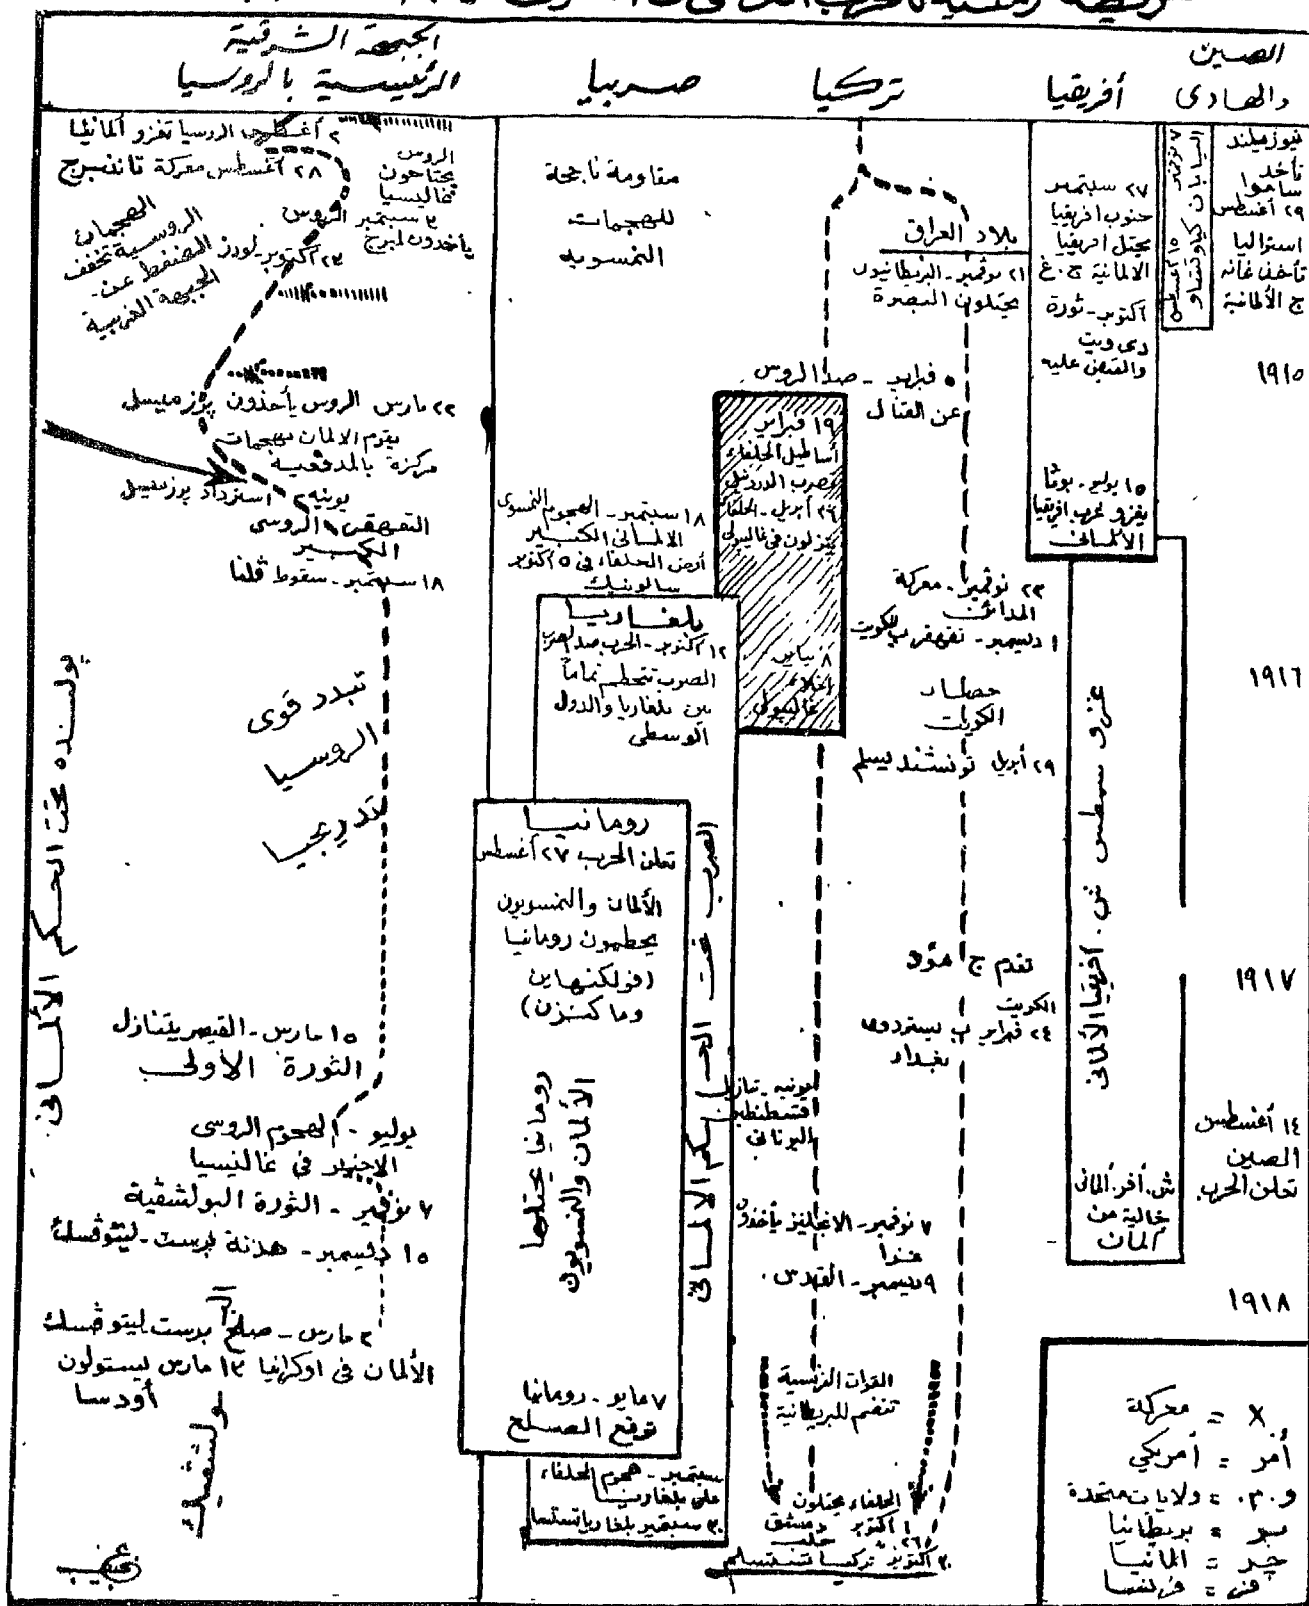 الصين
والهادى
أفريقيا
تركيا
صربيا
الجبهة الشرقية
الرئيسية بالروسيا
نيوزيلند
تأخذ
ساموا
٢٩ أغسطس
استراليا
تأخذ غانه
ج الألمانية
١٩١٥
١٩١٦
١٩١٧
١٤ أغسطس
الصين
تعلن الحرب
١٩١٨
٢٧ سبتمبر
جنوب افريقيا
يحتل افريقيا
الالمانية ج.غ
أكتوبر - ثورة
دى ويت
والقبض عليه
١٥ يوليو - بوثا
يغزو غرب افريقيا
الألمانى
غزو سمطس ش. أفريقيا الألمانى
ش. أفر. ألمانى
خالية من
ألمان
بلاد العراق
٢١ نوفمبر - البريطانيون
يحتلون البصرة
فبراير - صد الروس
عن القنال
١٩ فبراير
أساطيل الحلفاء
تضرب الدردنيل
٢٦ أبريل - الحلفاء
ينزلون فى غاليبولى
٨ يناير
إخلاء
غاليبولى
٢٣ نوفمبر - معركة
المدائن
١ ديسمبر - تقهقر ب للكويت
حصار
الكويت
٢٩ أبريل تونشند يسلم
تقدم ج مود
الكويت
٢٤ فبراير ب يستردون
بغداد
يونيه - تنازل
قسطنطين
اليونانى
٧ نوفمبر - الانجليز يأخذون
غزا
٩ ديسمبر - القدس.
القوات الفرنسية
تنضم للبريطانية
الحلفاء يحتلون
١ أكتوبر دمشق
٢٦ " حلب
٣٠ أكتوبر تركيا تستسلم
مقاومة ناجحة
للهجمات
النمسويه
١٨ سبتمبر - الهجوم النمسوى
الالمانى الكبير
أرض الحلفاء فى ٥ أكتوبر
سالونيك
بلغاريا
١٢ أكتوبر - الحرب ضد الصرب
الصرب تتحطم تماماً
بين بلغاريا والدول
الوسطى
رومانيا
تعلن الحرب ٢٧ أغسطس
الألمان والنمسويون
يحطمون رومانيا
(فولكنهاين
وماكنزن)
رومانيا يحتلها
الألمان والنمسويون
الصرب تحت الحكم الالمانى
٧ مايو - رومانيا
توقع الصلح
سبتمبر - هجوم الحلفاء
على بلغاريا
٣٠ سبتمبر بلغاريا تستسلم
٢ أغسطس الروسيا تغزو ألمانيا
٢٨ أغسطس معركة تاننبرج
الروس
يجتاحون
غاليسيا
٣ سبتمبر الروس
يأخذون لمبرج
٢٣ أكتوبر - لودز
الهجمات
الروسية تخفف
الضغط عن
الجبهة الغربية
٢٢ مارس الروس يأخذون برزميسل
يقوم الالمان بهجمات
مركزة بالمدفعيه
يونيه ٢ استرداد برزميسل
التقهقر الروسى
الكبير
١٨ سبتمبر - سقوط ڤلنا
تبدد قوى
الروسيا
تدريجيا
پولنده تحت الحكم الألمانى.
١٥ مارس - القيصر يتنازل
الثورة الأولى
يوليو - الهجوم الروسى
الاخير فى غاليسيا
٧ نوفمبر - الثورة البولشفية
١٥ ديسمبر - هدنة برست - ليتوڤسك
٣ مارس - صلح برست ليتوڤسك
الألمان فى اوكرانيا ١٣ مارس يستولون
أودسا
X = معركة
أمر = أمريكي
و.م. = ولايات متحدة
بر = بريطانيا
جر = المانيا
فر = فرنسا